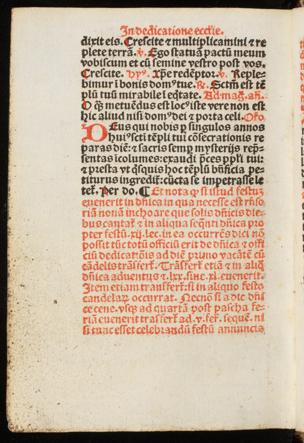 In dedicatione ecctie.
dixit eis. Crescite ⁊ multiplicamini ⁊ re
plete terrā. v. Ego statuam pactū meum
vobiscum et cū semine vestro post vos.
Crescite. Xp̄e redēptor. v. Reple-
bimur ī bonis domꝰ tue. R. Sctm̄ est tē
plū tuū mirabile ī eqtate. Ad mag. añ.
O q̄ metuēdus est locꝰ iste vere non est
hic aliud nisi domꝰ dei ⁊ porta celi. Oro.
Deus qui nobis p singulos annos
huiꝰ scti tēpli tui cōsecrationis re
paras diē: ⁊ sacris semp mysterijs rep̄-
sentas īcolumes: exaudi p̄ces ppli tui:
⁊ presta vt q̄squis hoc tēplū bn̄ficia pe
titurus ingredit: cūcta se impetrasse le
tet. Per do. Et nota q̄ si istud festuz
euenerit in dn̄ica in qua necesse est rn̄so
riā nouā inchoare que solis dn̄icis die-
bus cantat ⁊ in aliqua sequēti dn̄ica pro
pter festū. xij. lec. in ea occurrēs dici nō
possit tūc totū officiū erit de dn̄ica ⁊ offi
ciū dedicationis ad diē primo vacātē cū
cādelis trāsfert. Trāsfert etiā ⁊ in aliq̄
dn̄ica aduentus ⁊ lxx. sine. xl. euenerit.
Item etiam trāsfert: si in aliquo festo
candelaꝝ occurrat. Necnō si a die dn̄i
ce cene. vsq̄ ad quartā post pascha fe-
riā euenerit trāsfert ad. v. fer. sequē. ni
si tunc esset celebrandū festū annuncia